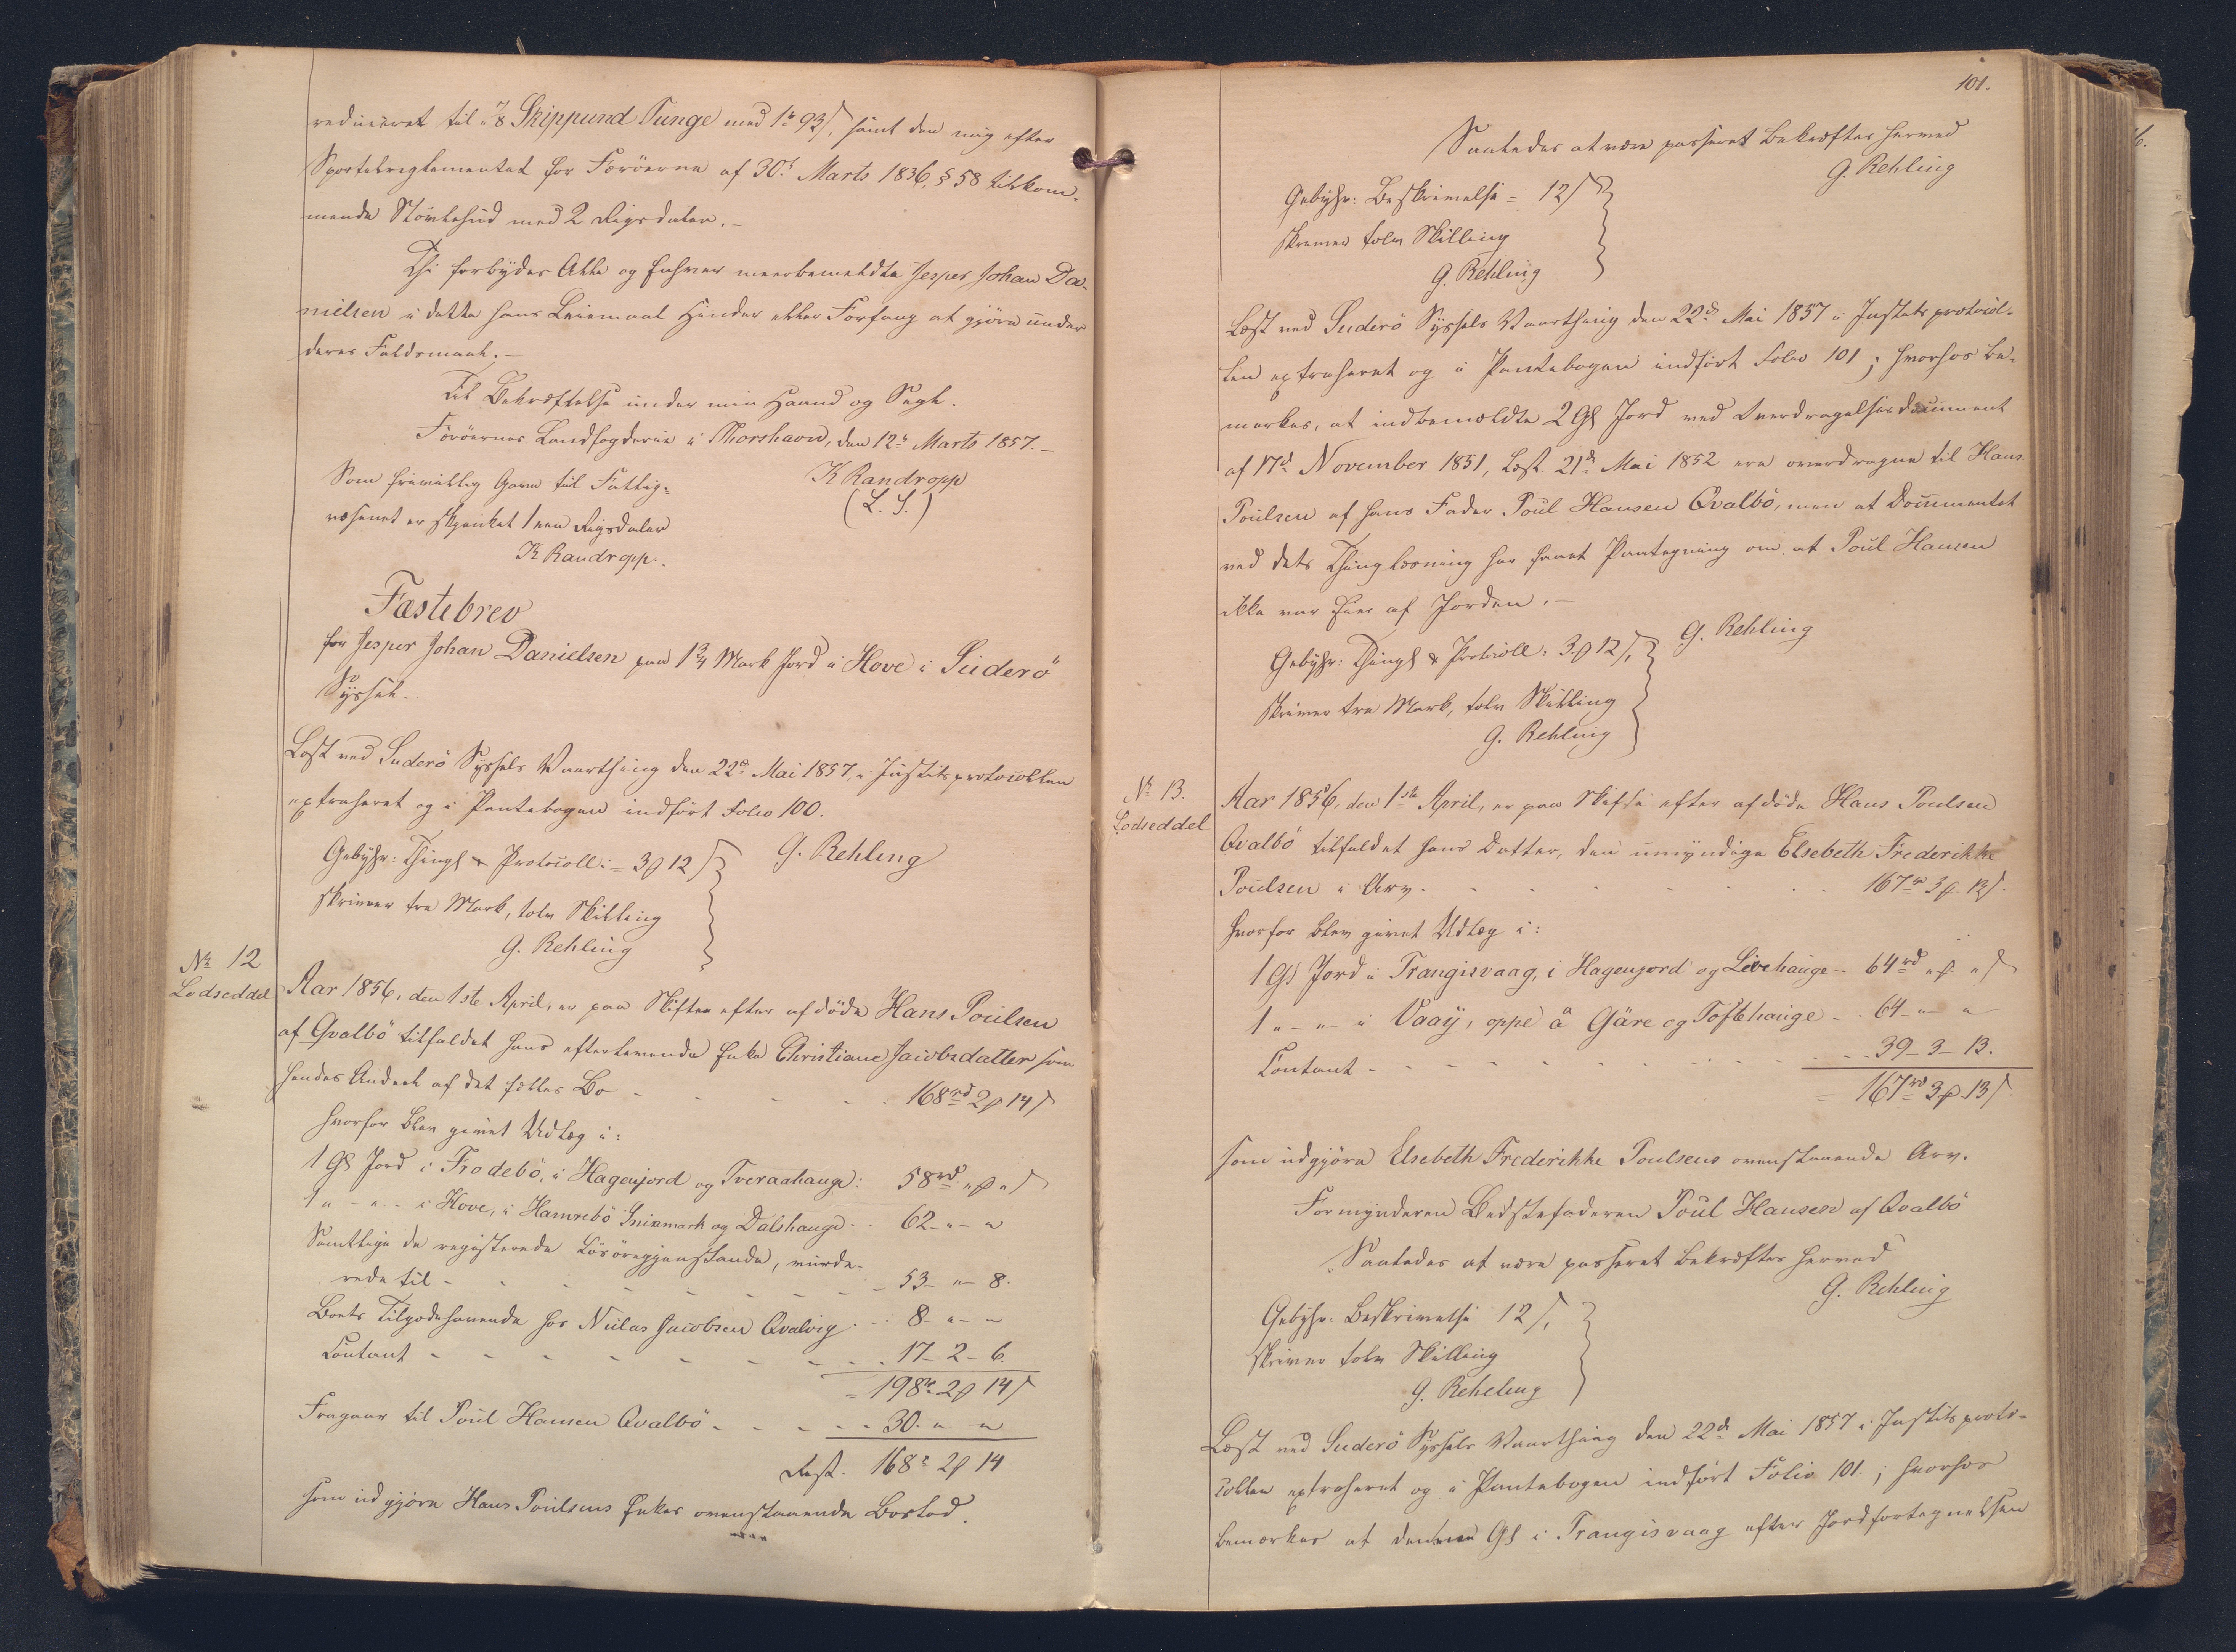 reduceret til " 7/8 Skippund Tunge med 1rd 93 s, samt den mig efter
Sportelreglementet for Færøerne af 30te Marts 1836, § 58 tilkom-
mende Støvlehud med 2 Rigsdaler. –
Thi forbydes Alle og Enhver meerbemeldte Jesper Johan Da-
nielsen i dette hans Leiemaal Hinder eller Forfang at gjøre under
deres Faldsmaal. –
Til Bekræftelse under min Haand og Segl.
Færöernes Landfogderie i Thorshavn, den 12te Marts 1857. –
K Randropp
(L. S.)
Som frivillig Gave til Fattig-
væsenet er skjænket 1 een Rigsdaler
K Randropp.
Fæstebrev
for Jesper Johan Danielsen paa 1 3/4 Mark Jord i Hove i Suderö
Syssel.
Læst ved Suderö Syssels Vaarthing den 22de Mai 1857, i Justitsprotocollen
extraheret og i Pantebogen indført Folio 100.
G. Rehling
Gebyhr: Thingl & Protocoll: = 3 ß 12 s
skriver tre Mark, tolv Skilling
G. Rehling
No 12
Lodseddel
Aar 1856, den 1ste April, er paa Skiftet efter afdöde Hans Poulsen
af Qvalbö tilfaldet hans efterlevende Enke Christiane Jacobsdatter som
hendes Andeel af det fælles Bo - - - 168rd 2 ß 14 s
hvorfor blev givet Udlæg i:
1 Gl Jord i Frodebö, i Hagenjord og Tveraahauge: 58rd " ß " s
1 " - " - i Hove, i Hamrebö Sniamark og Dalshauge - - 62 - " - "
Samtlige de registerede Lösöregjenstande, vurde-
rede til - - - - - - - 53 - " - 8.
Boets Tilgodehavende hos Niclas Jacobsen Qvalvig - - 8 - " - "
Contant - - - - - - - 17 - 2 - 6.
= 198rd 2 ß 14 s
Fragaar til Poul Hansen Qvalbö - - - - 30. " "
Rest. 168rd 2 ß 14
som udgjöre Hans Poulsens Enkes ovenstaaende Boslod.
101.
Saaledes at være passeret bekræftes herved
G. Rehling
Gebyhr: Beskrivelse = 12 s
skriver tolv Skilling
G. Rehling
Læst ved Suderö Syssels Vaarthing den 22de Mai 1857 i Justitsprotocol-
len extraheret og i Pantebogen indført Folio 101; hvorhos be-
mærkes, at indbemældte 2 Gl Jord ved Overdragelsesdocument
af 17de November 1851, Læst. 21de Mai 1852 ere overdragne til Hans
Poulsen af hans Fader Poul Hansen Qvalbö, men at Documentet
ved dets Thinglæsning har faaet Paategning om, at Poul Hansen
ikke var Eier af Jorden. –
G. Rehling
Gebyhr: Thingl & Protocoll: 3 ß 12 s,
skriver tre Mark, tolv Skilling
G. Rehling
No 13.
Lodseddel
Aar 1856, den 1ste April, er paa Skifte efter afdöde Hans Poulsen
Qvalbö tilfaldet hans Datter, den umyndige Elsebeth Frederikke
Poulsen i Arv - - - - - - 167rd 3 ß 13 s.
hvorfor blev givet Udlæg i:
1 Gl Jord i Trangisvaag, i Hagenjord og Livehauge - 64rd " ß " s
1 " - " - i Vaaÿ, oppe å Gäre og Toftehauge - - 64 - " - "
Contant - - - - - - - - 39 - 3 - 13.
= 167rd 3 ß 13 s
som udgjöre Elsebeth Frederikke Poulsens ovenstaaende Arv.
Formynderen Bedstefaderen Poul Hansen af Qvalbö
Saaledes at være passeret bekræftes herved
G. Rehling
Gebyhr: Beskrivelse 12 s,
skriver tolv Skilling
G. Rehling
Læst ved Suderö Syssels Vaarthing den 22de Mai 1857 i Justitsproto-
collen extraheret og i Pantebogen indført Folio 101.; hvorhos
bemærkes at denne Gl i Trangisvaag efter Jordfortegnelsen